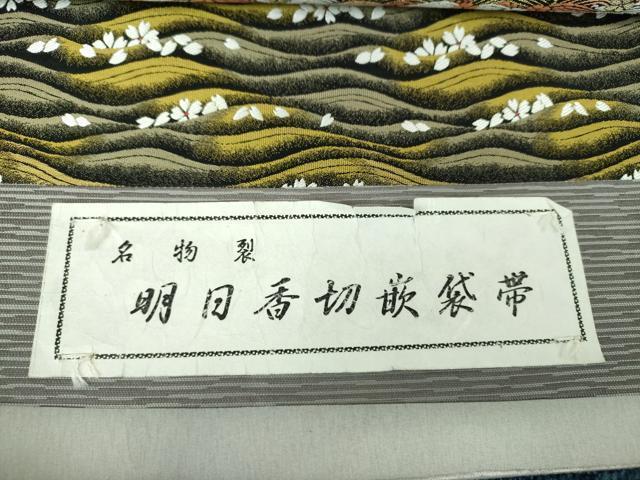 名物裂
明日香切嵌袋帯